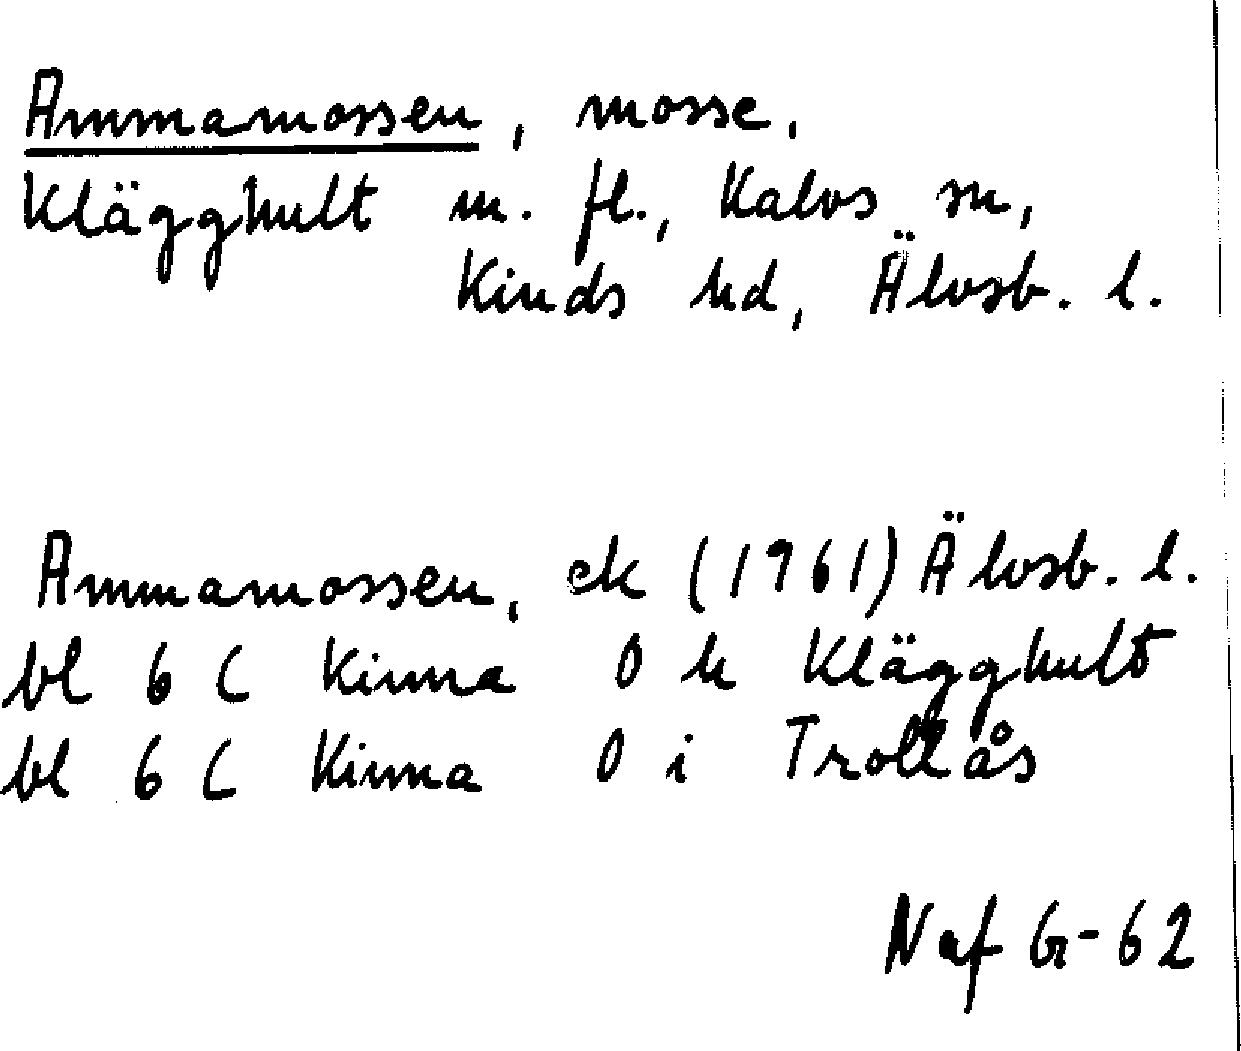 Ammamossen, mosse.
Klägghult m. fl., Kalvs sn,
Kinds hd, Älvsb. l.
Ammamossen, ek (1961) Älvsb. l.
bl 6 C Kinna 0 h Klägghult
bl 6 C Kinna 0 i Trollås
Naf G-62